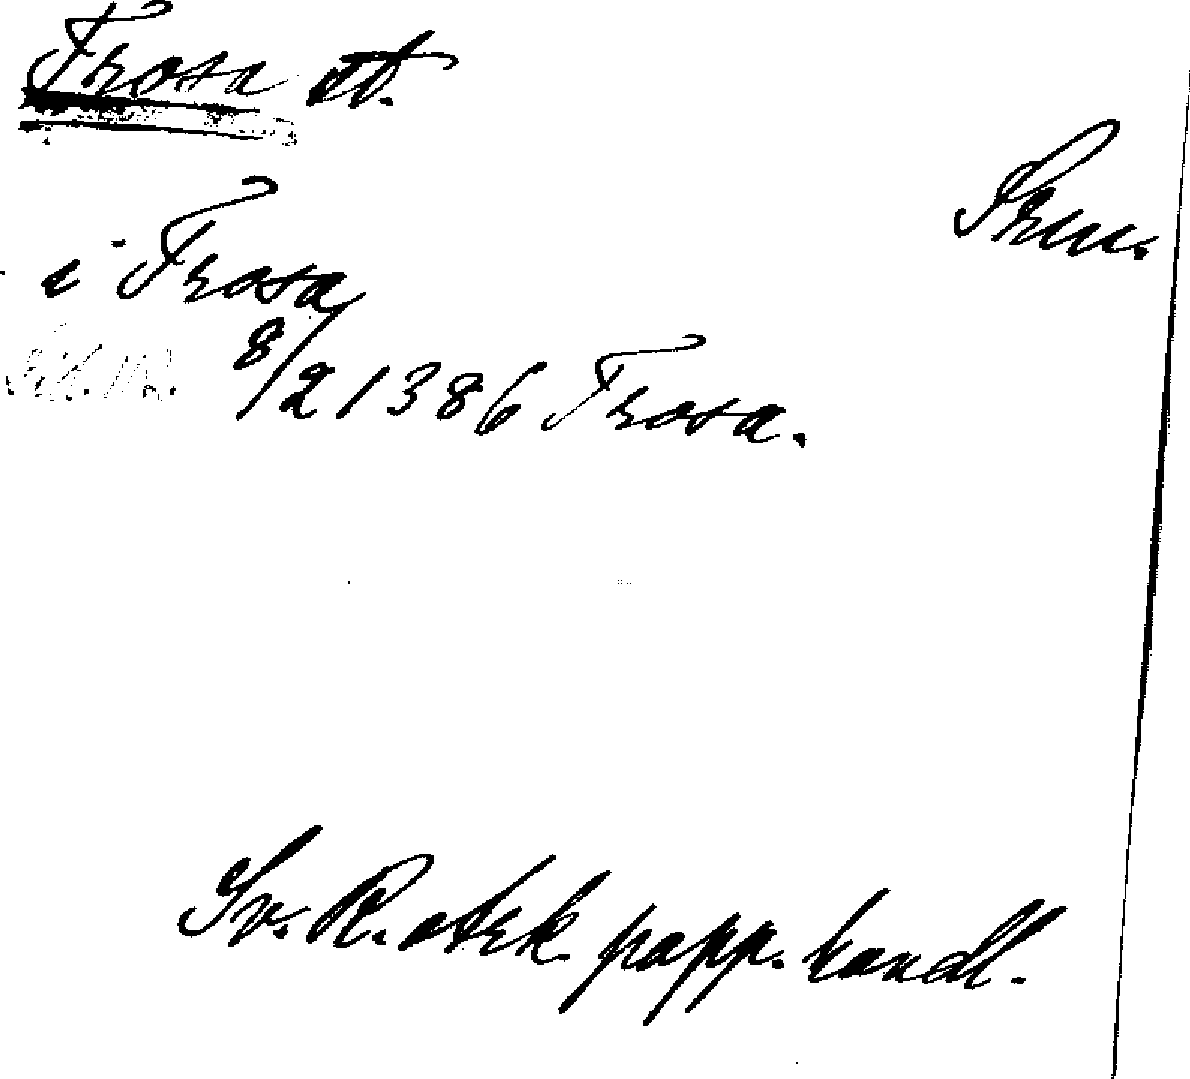 Trosa st.
Srm.
i Trosa
8/2 1386 Trosa.
Sv. R. ark. papp. handl.